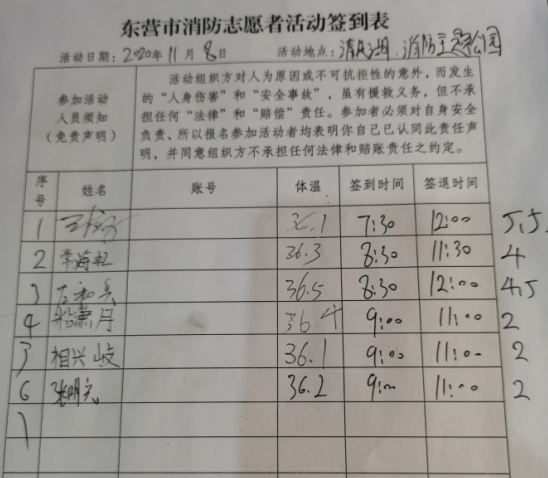 东营市消防志愿者活动签到表
活动日期：2020年11月8日 活动地点：清风湖 消防主题公园
参加活动
人员须知
（免责声明）
活动组织方对人为原因或不可抗拒性的意外，而发生
的“人身伤害”和“安全事故”，虽有援救义务，但不承
担任何“法律”和“赔偿”责任。参加者必须对自身安全
负责，所以报名参加活动者均表明你自己已认同此责任声
明，并同意组织方不承担任何法律和赔账责任之约定。
序号 姓名 账号 体温 签到时间 签退时间
1 36.1 7:30 12:00 5.5
2 常海虹 36.3 8:30 11:30 4
3 36.5 8:30 12:00 4.5
4 36.4 9:00 11:00 2
5 相兴岐 36.1 9:00 11:00 2
6 张明元 36.2 9:00 11:00 2
7